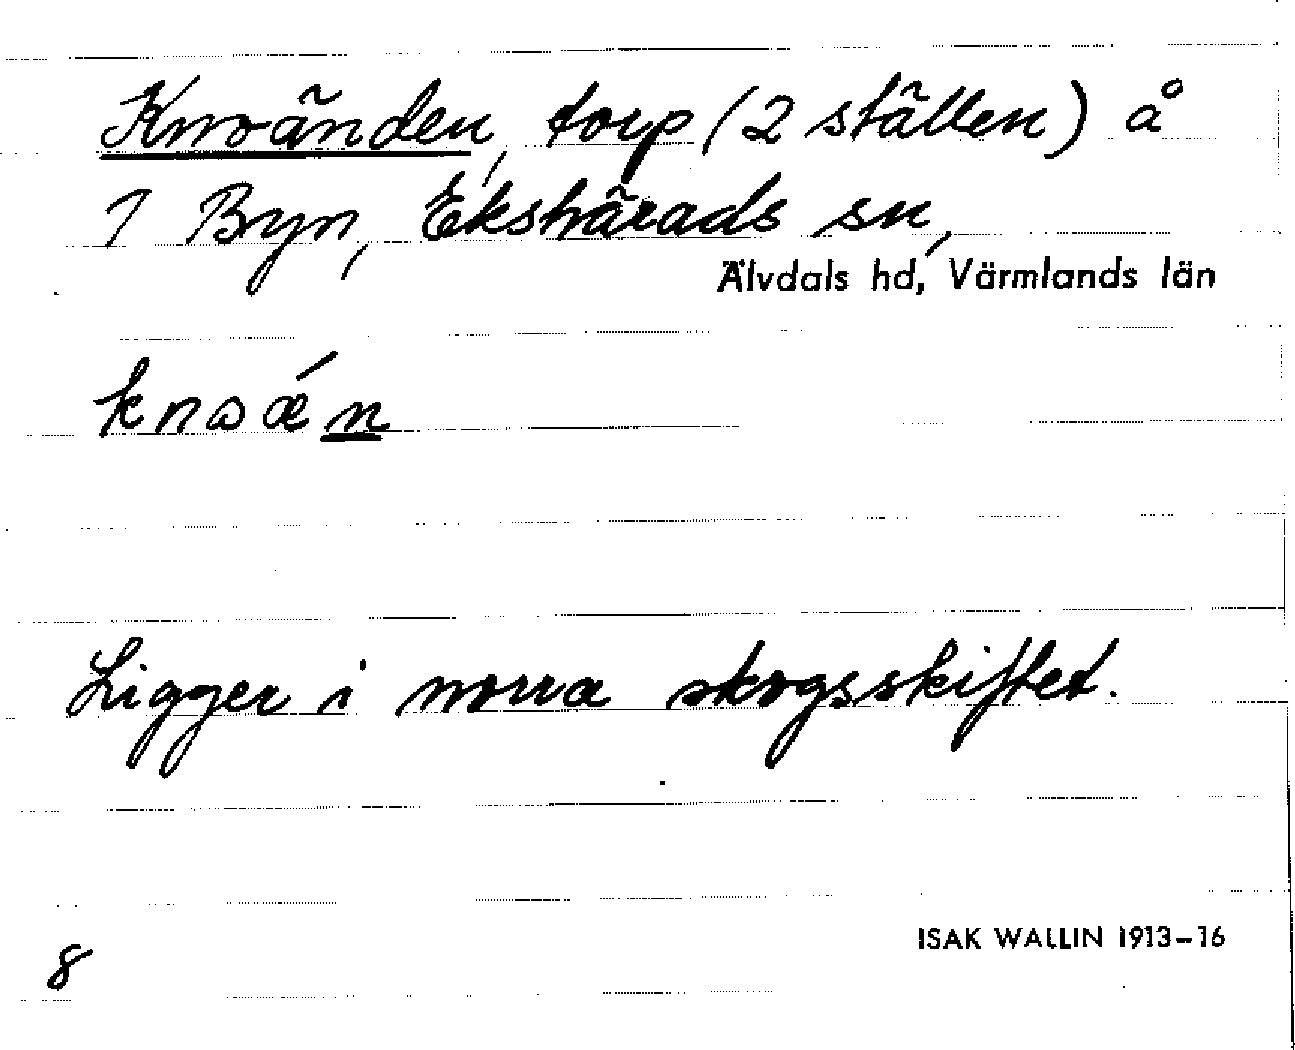 Knoänden, torp (2 ställen) å
1 Byn, Ekshärads sn,
Älvdals hd, Värmlands län
knɷǽn
Ligger i norra skogsskiftet.
ISAK WALLIN 1913-16
8